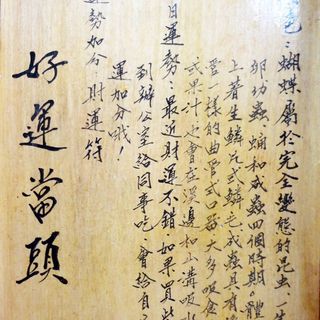 色：蝴蝶屬於完全變態的昆虫，一生
卵幼蟲 蛹和成蟲四個時期。體
上著生鱗片式鱗毛成蟲具有
管一樣的曲管式口器大多吸食
式果汁，之會在溪邊如山溝吸水
日運勢：最近財運不錯，如果買些
到辦公室給同事吃，會給自
運加分哦！
運勢加分：財運符
好運當頭